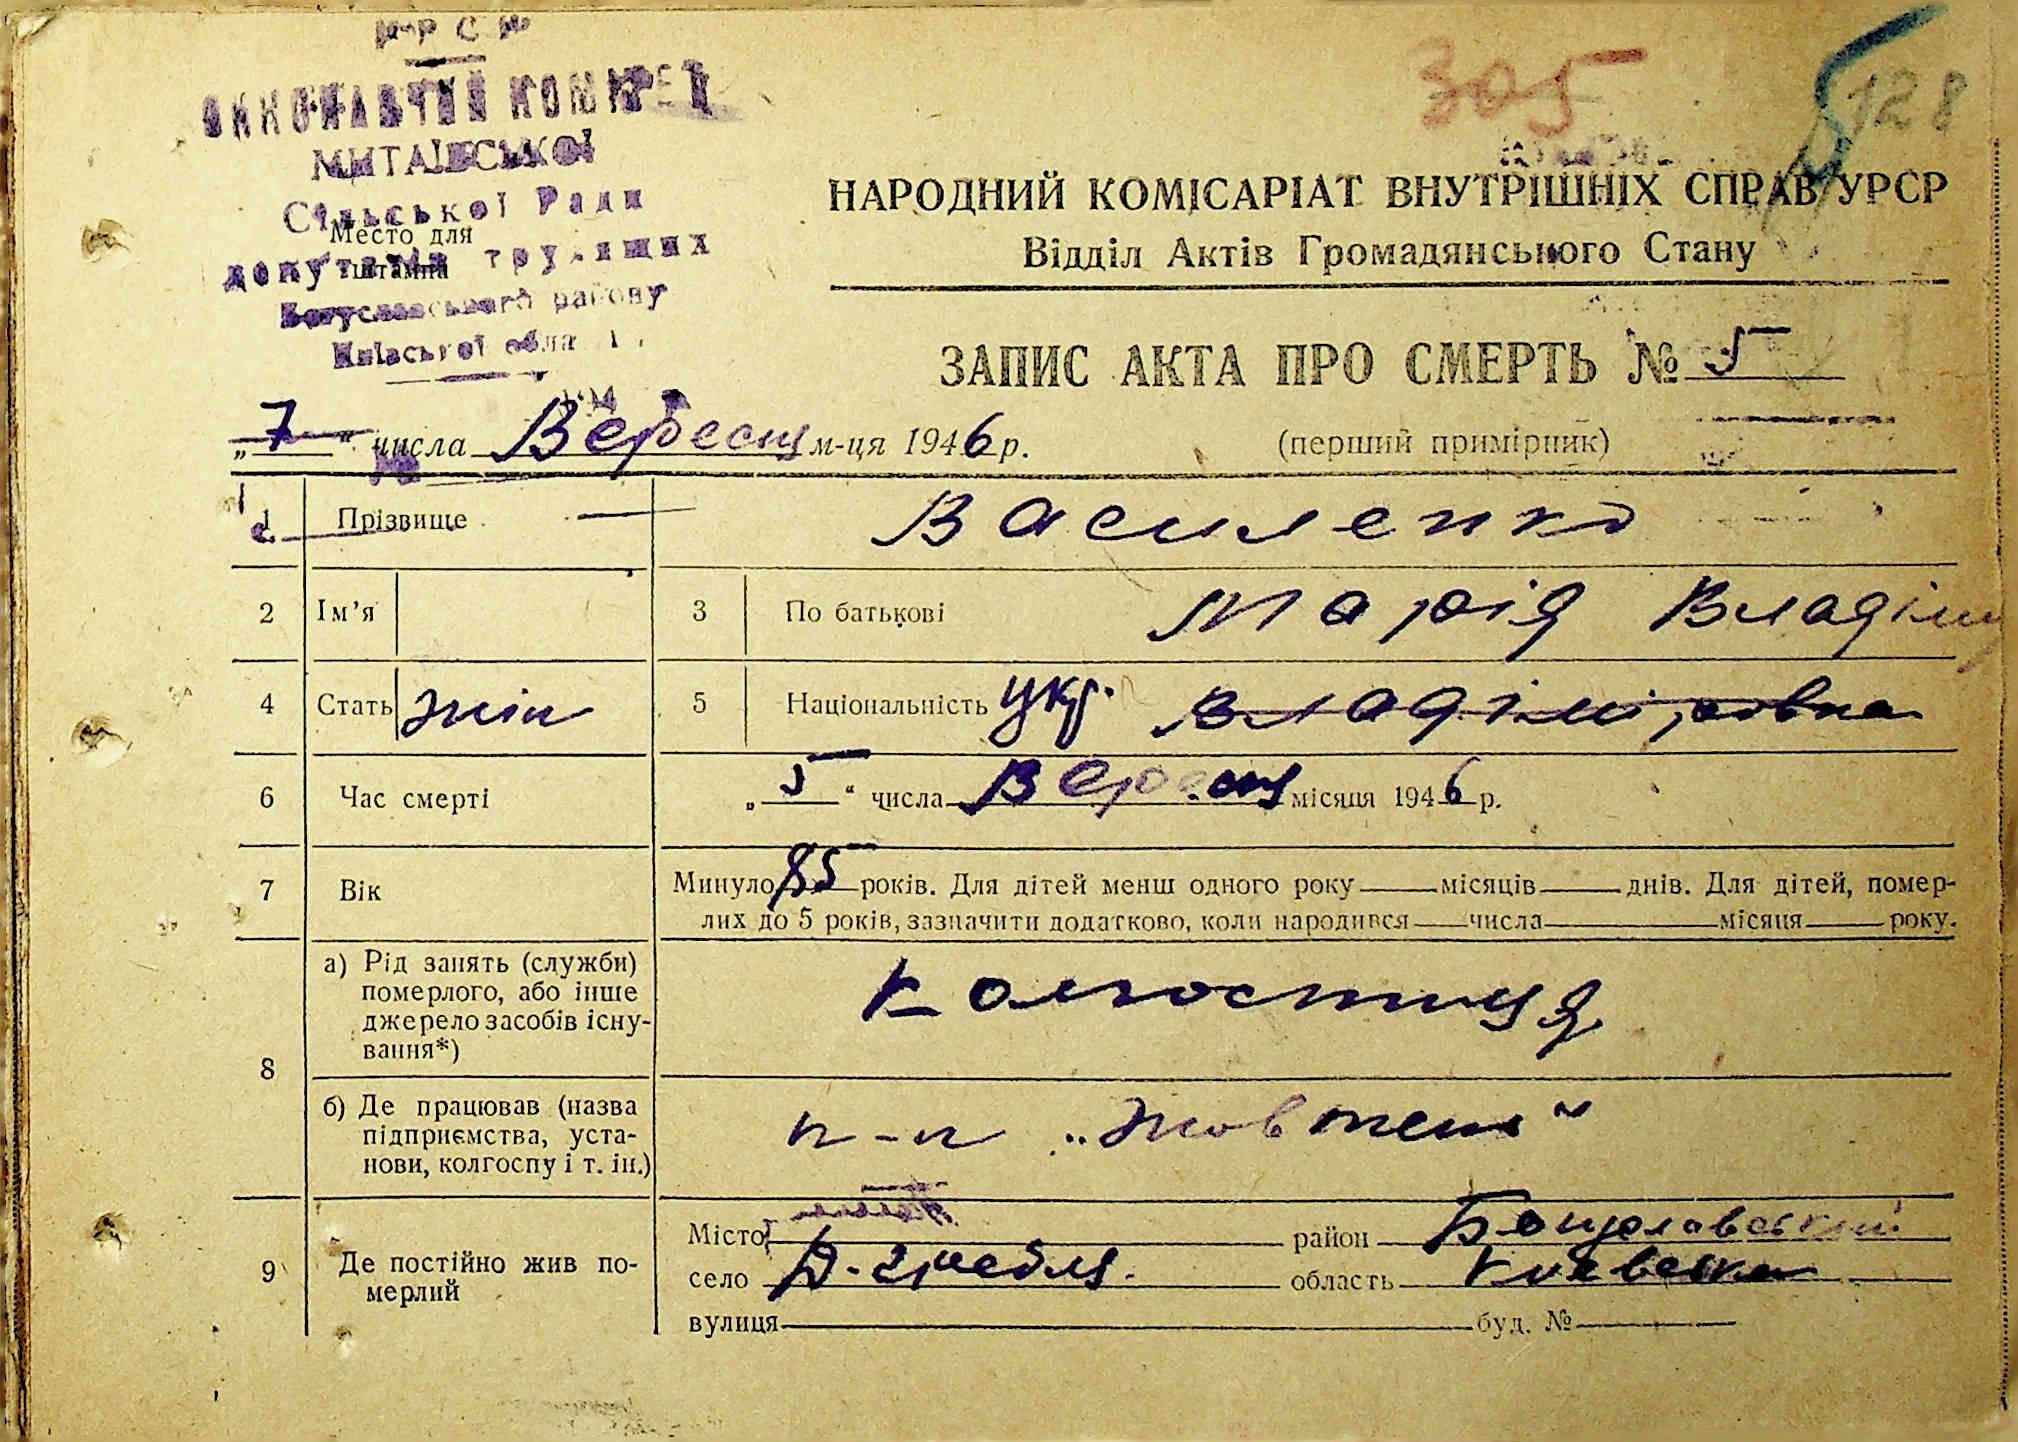 УРСР
ВИКОНАВЧИЙ КОМІТЕТ
МИТАЇВСЬКОЇ
Сільської Ради
Место для
депутатів трудящих
штампа
Богуславського району
Київської області
305
5
128
НАРОДНИЙ КОМІСАРІАТ ВНУТРІШНІХ СПРАВ УРСР
Відділ Актів Громадянського Стану
ЗАПИС АКТА ПРО СМЕРТЬ № 5
„7“ числа Вересня м-ця 1946 р.
(перший примірник)
1 Прізвище Василенко
2 Ім’я 3 По батькові Марія Владім
4 Стать жін 5 Національність укр. Владіміровна
6 Час смерті „5“ числа Вересня місяця 1946 р.
7 Вік Минуло 85 років. Для дітей менш одного року місяців днів. Для дітей, помер-
лих до 5 років, зазначити додатково, коли народився числа місяця року.
8 а) Рід занять (служби)
померлого, або інше
джерело засобів існу-
вання*)
колгоспниця
б) Де працював (назва
підприємства, уста-
нови, колгоспу і т. ін.)
к-п „Жовтень“
9 Де постійно жив по-
мерлий
Місто район Богуславський
село Д-гребля. область Киевская
вулиця буд. №